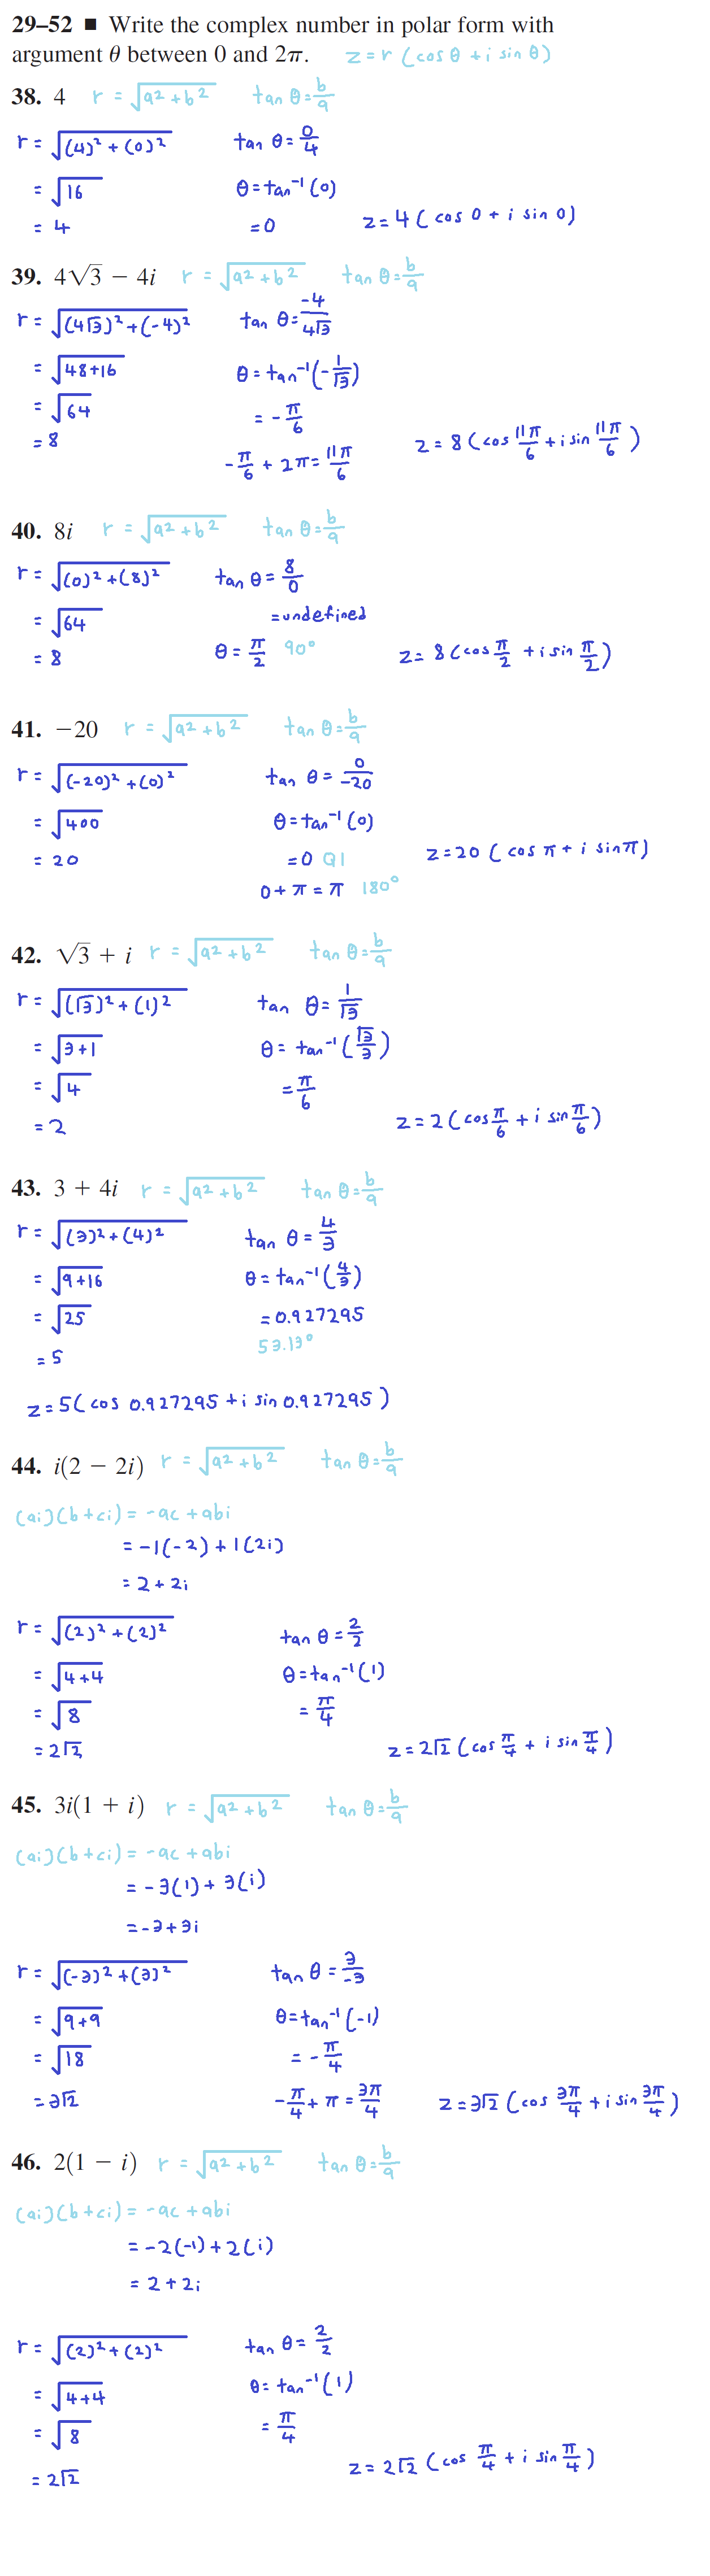 29–52 ■ Write the complex number in polar form with
argument θ between 0 and 2π. z = r (cos θ + i sin θ)
38. 4 r = √(a² + b²) tan θ = b/a
r = √((4)² + (0)²) tan θ = 0/4
= √16 θ = tan⁻¹(0)
= 4 = 0 z = 4(cos 0 + i sin 0)
39. 4√3 − 4i r = √(a² + b²) tan θ = b/a
r = √((4√3)² + (-4)²) tan θ = -4/4√3
= √(48+16) θ = tan⁻¹(-1/√3)
= √64 = -π/6
= 8 z = 8(cos 11π/6 + i sin 11π/6)
-π/6 + 2π = 11π/6
40. 8i r = √(a² + b²) tan θ = b/a
r = √((0)² + (8)²) tan θ = 8/0
= √64 = undefined
= 8 θ = π/2 90° z = 8(cos π/2 + i sin π/2)
41. −20 r = √(a² + b²) tan θ = b/a
r = √((-20)² + (0)²) tan θ = 0/-20
= √400 θ = tan⁻¹(0)
= 20 = 0 Q1 z = 20 (cos π + i sin π)
0 + π = π 180°
42. √3 + i r = √(a² + b²) tan θ = b/a
r = √((√3)² + (1)²) tan θ = 1/√3
= √(3+1) θ = tan⁻¹(√3/3)
= √4 = π/6
= 2 z = 2(cos π/6 + i sin π/6)
43. 3 + 4i r = √(a² + b²) tan θ = b/a
r = √((3)² + (4)²) tan θ = 4/3
= √(9+16) θ = tan⁻¹(4/3)
= √25 = 0.927295
= 5 53.13°
z = 5(cos 0.927295 + i sin 0.927295)
44. i(2 − 2i) r = √(a² + b²) tan θ = b/a
(ai)(b+ci) = -ac + abi
= -1(-2) + 1(2i)
= 2 + 2i
r = √((2)² + (2)²) tan θ = 2/2
= √(4+4) θ = tan⁻¹(1)
= √8 = π/4
= 2√2 z = 2√2 (cos π/4 + i sin π/4)
45. 3i(1 + i) r = √(a² + b²) tan θ = b/a
(ai)(b+ci) = -ac + abi
= -3(1) + 3(i)
= -3 + 3i
r = √((-3)² + (3)²) tan θ = 3/-3
= √(9+9) θ = tan⁻¹(-1)
= √18 = -π/4
= 3√2 -π/4 + π = 3π/4 z = 3√2 (cos 3π/4 + i sin 3π/4)
46. 2(1 − i) r = √(a² + b²) tan θ = b/a
(ai)(b+ci) = -ac + abi
= -2(-1) + 2(i)
= 2 + 2i
r = √((2)² + (2)²) tan θ = 2/2
= √(4+4) θ = tan⁻¹(1)
= √8 = π/4
= 2√2 z = 2√2 (cos π/4 + i sin π/4)